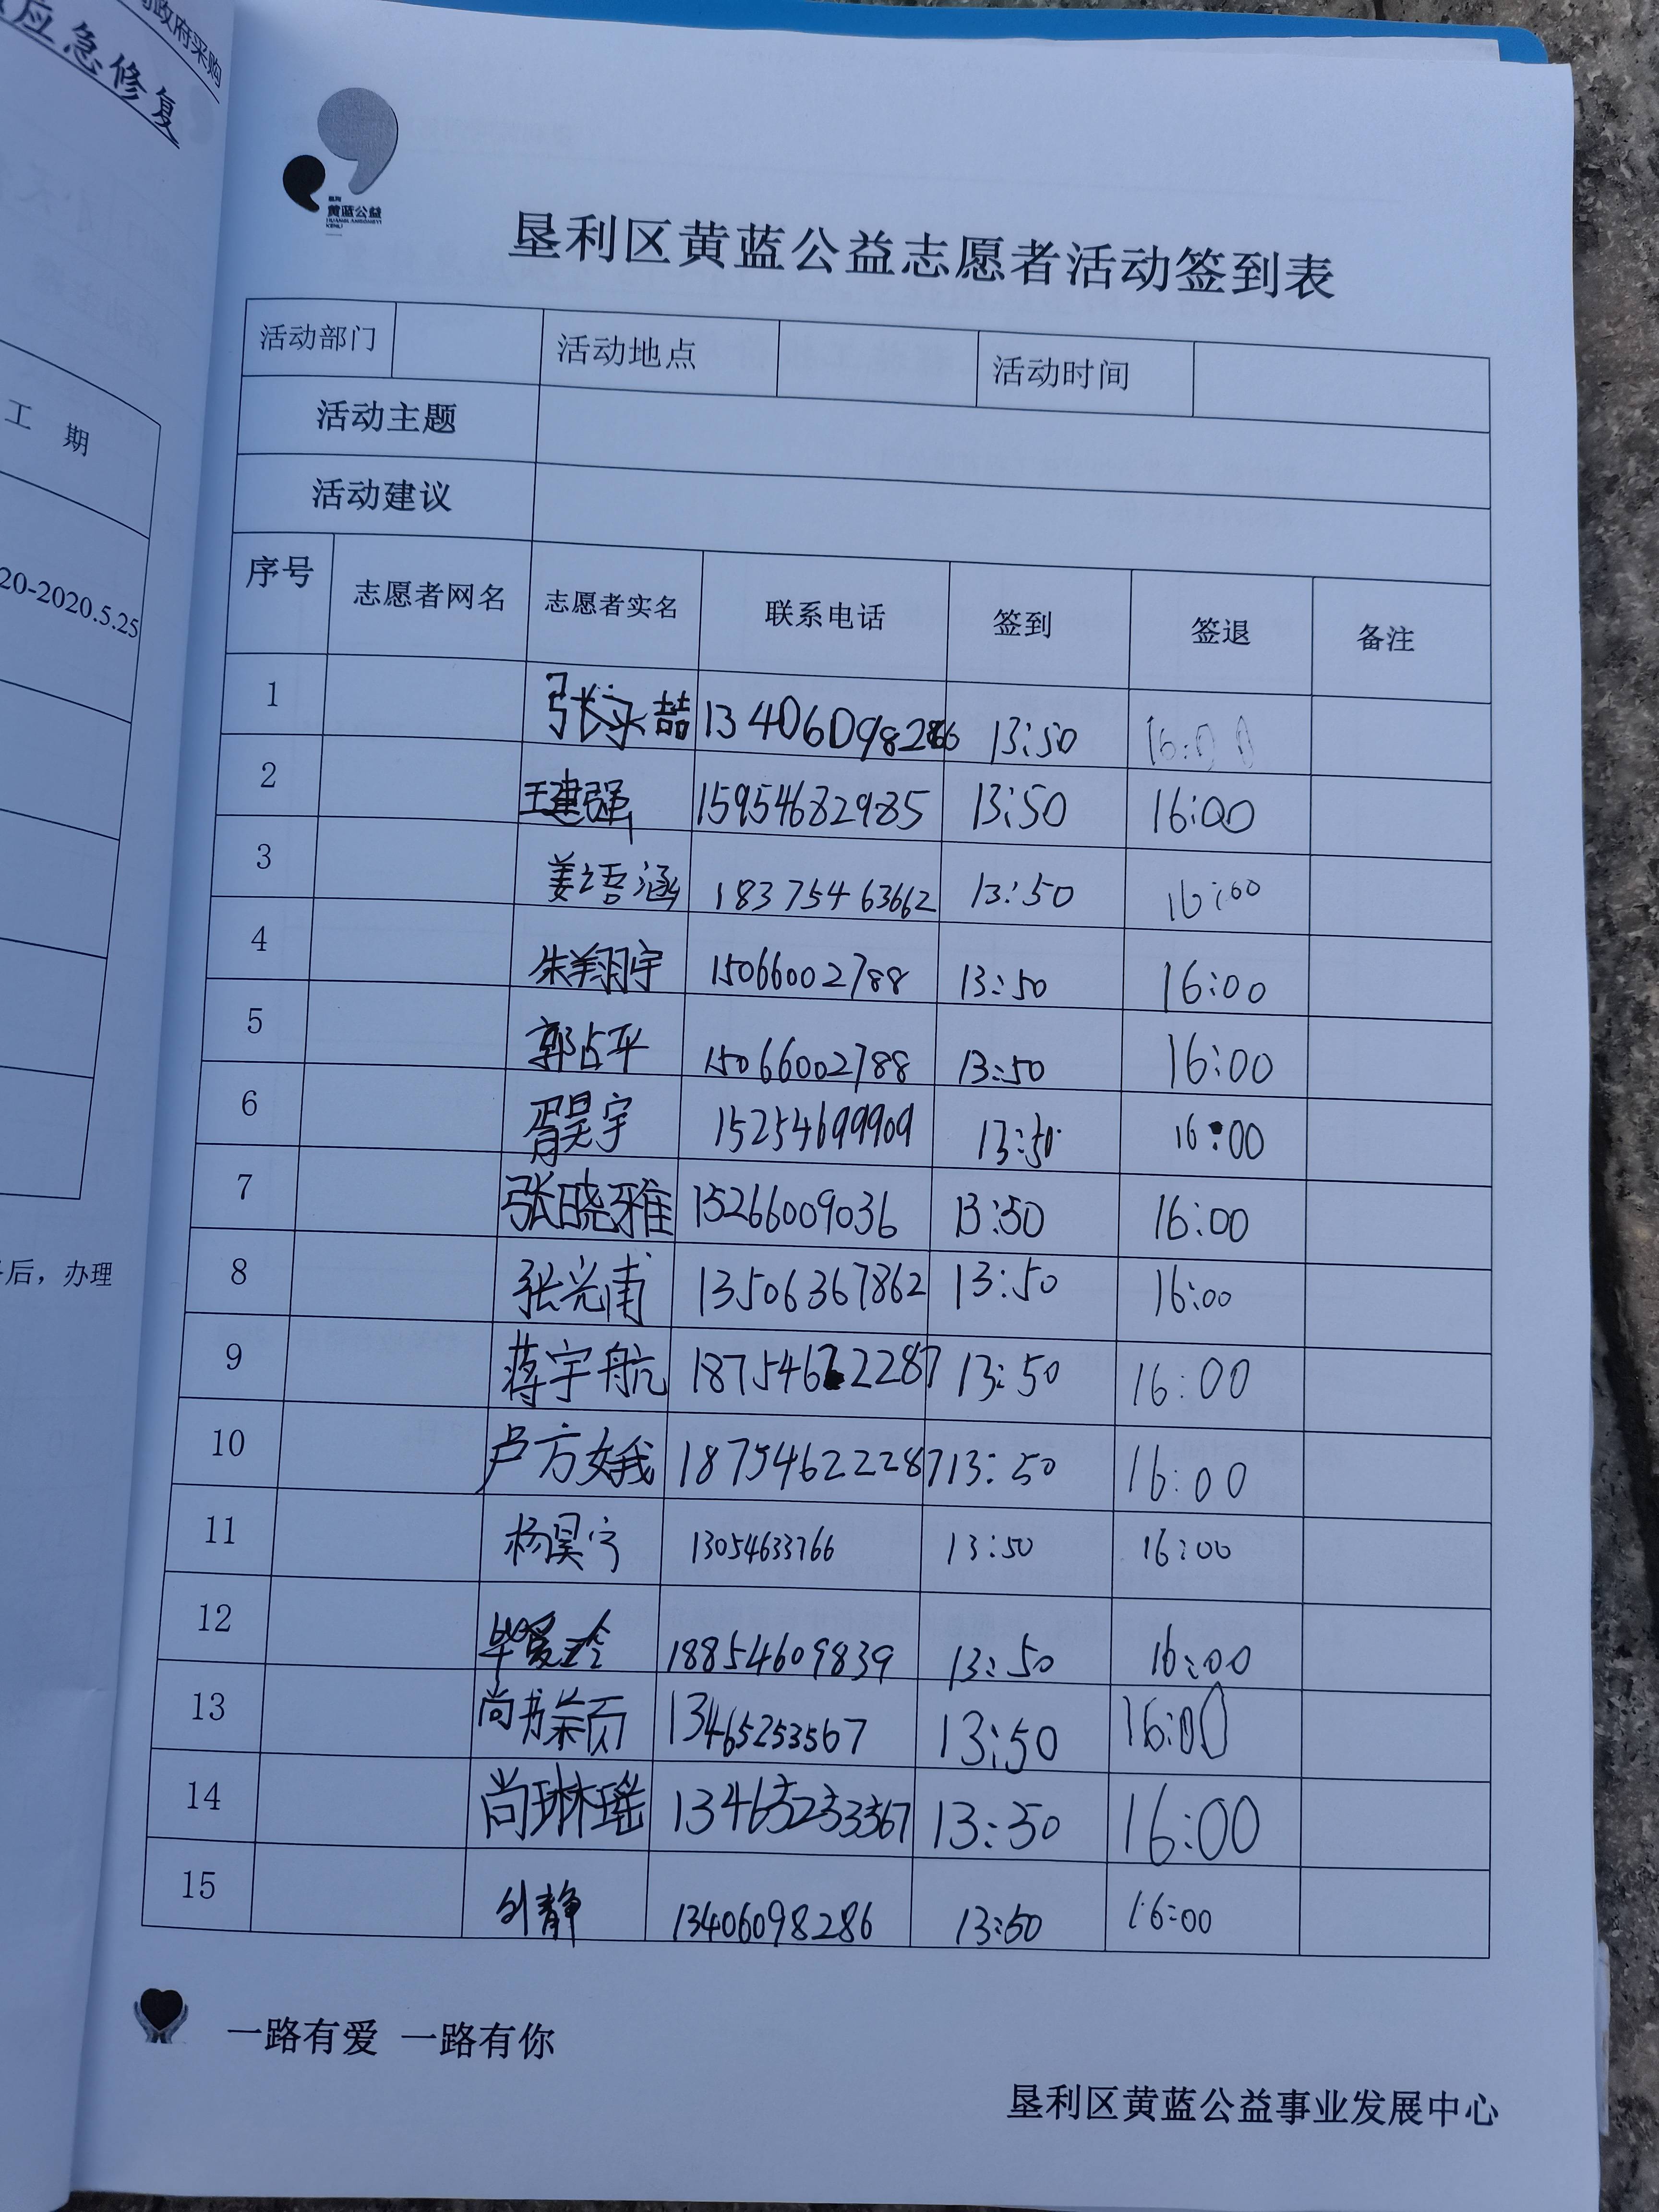 政府采购
应急修复
工 期
20-2020.5.25
后，办理
黄蓝公益
垦利区黄蓝公益志愿者活动签到表
活动部门 活动地点 活动时间
活动主题
活动建议
序号 志愿者网名 志愿者实名 联系电话 签到 签退 备注
1 张永喆 13406098286 13:50 16:00
2 王建强 15954682985 13:50 16:00
3 姜语涵 18375463662 13:50 16:00
4 朱翔宇 15066002788 13:50 16:00
5 郭占平 15066002788 13:50 16:00
6 胥昊宇 15254699909 13:50 16:00
7 张晓雅 15266009036 13:50 16:00
8 张光甫 13506367862 13:50 16:00
9 蒋宇航 18754622287 13:50 16:00
10 卢方娥 18754622287 13:50 16:00
11 杨昊宁 13054633766 13:50 16:00
12 毕爱玲 18854609839 13:50 16:00
13 尚 13465253567 13:50 16:00
14 尚琳瑶 13465253567 13:50 16:00
15 刘静 13406098286 13:50 16:00
一路有爱 一路有你
垦利区黄蓝公益事业发展中心